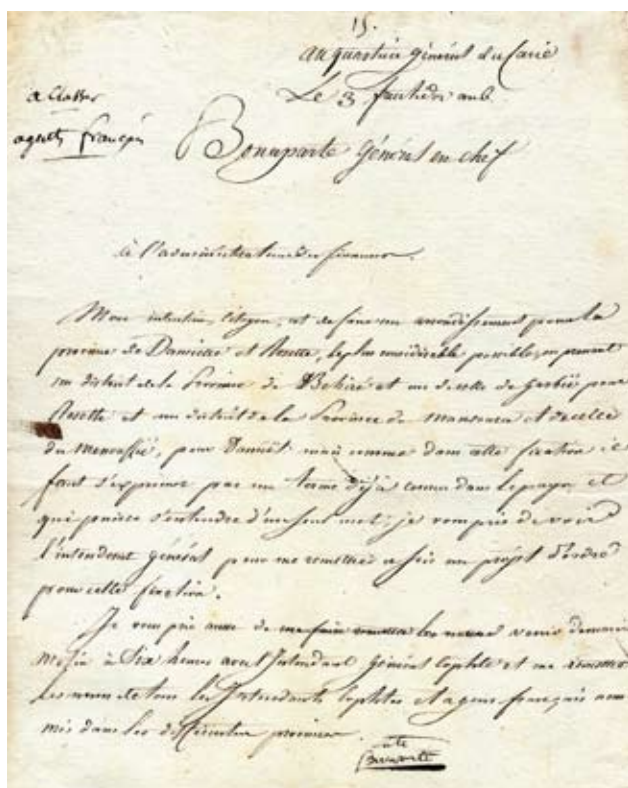 15.
au quartier général du Caire
Le 3 fructidor an 6.
a classer
agents français
Bonaparte Général en chef
à l'administrateur des finances.
Mon intention, Citoyen, est de faire un arrondissement pour la
province de Damiette et Rosette, le plus considérable possible, en prenant
un district de la Province de Bahiré et un de celle de Garbié pour
Rosette et un district de la Province de Mansoura et de celle
du Menouffié, pour Damiett. mais comme dans cette fixation il
faut s'exprimer par un terme déjà connu dans le pays, et
qui puisse s'entendre d'un seul mot; je vous prie de voir
l'intendant général pour me remettre ce soir un projet d'ordre
pour cette fixation.
Je vous prie aussi de me faire remettre les noms venir demain
matin à Six heures avec l'Intendant Général Cophte et me remettre
les noms de tous les Intendants Cophtes et agens français nom
més dans les différentes provinces.
Bonaparte